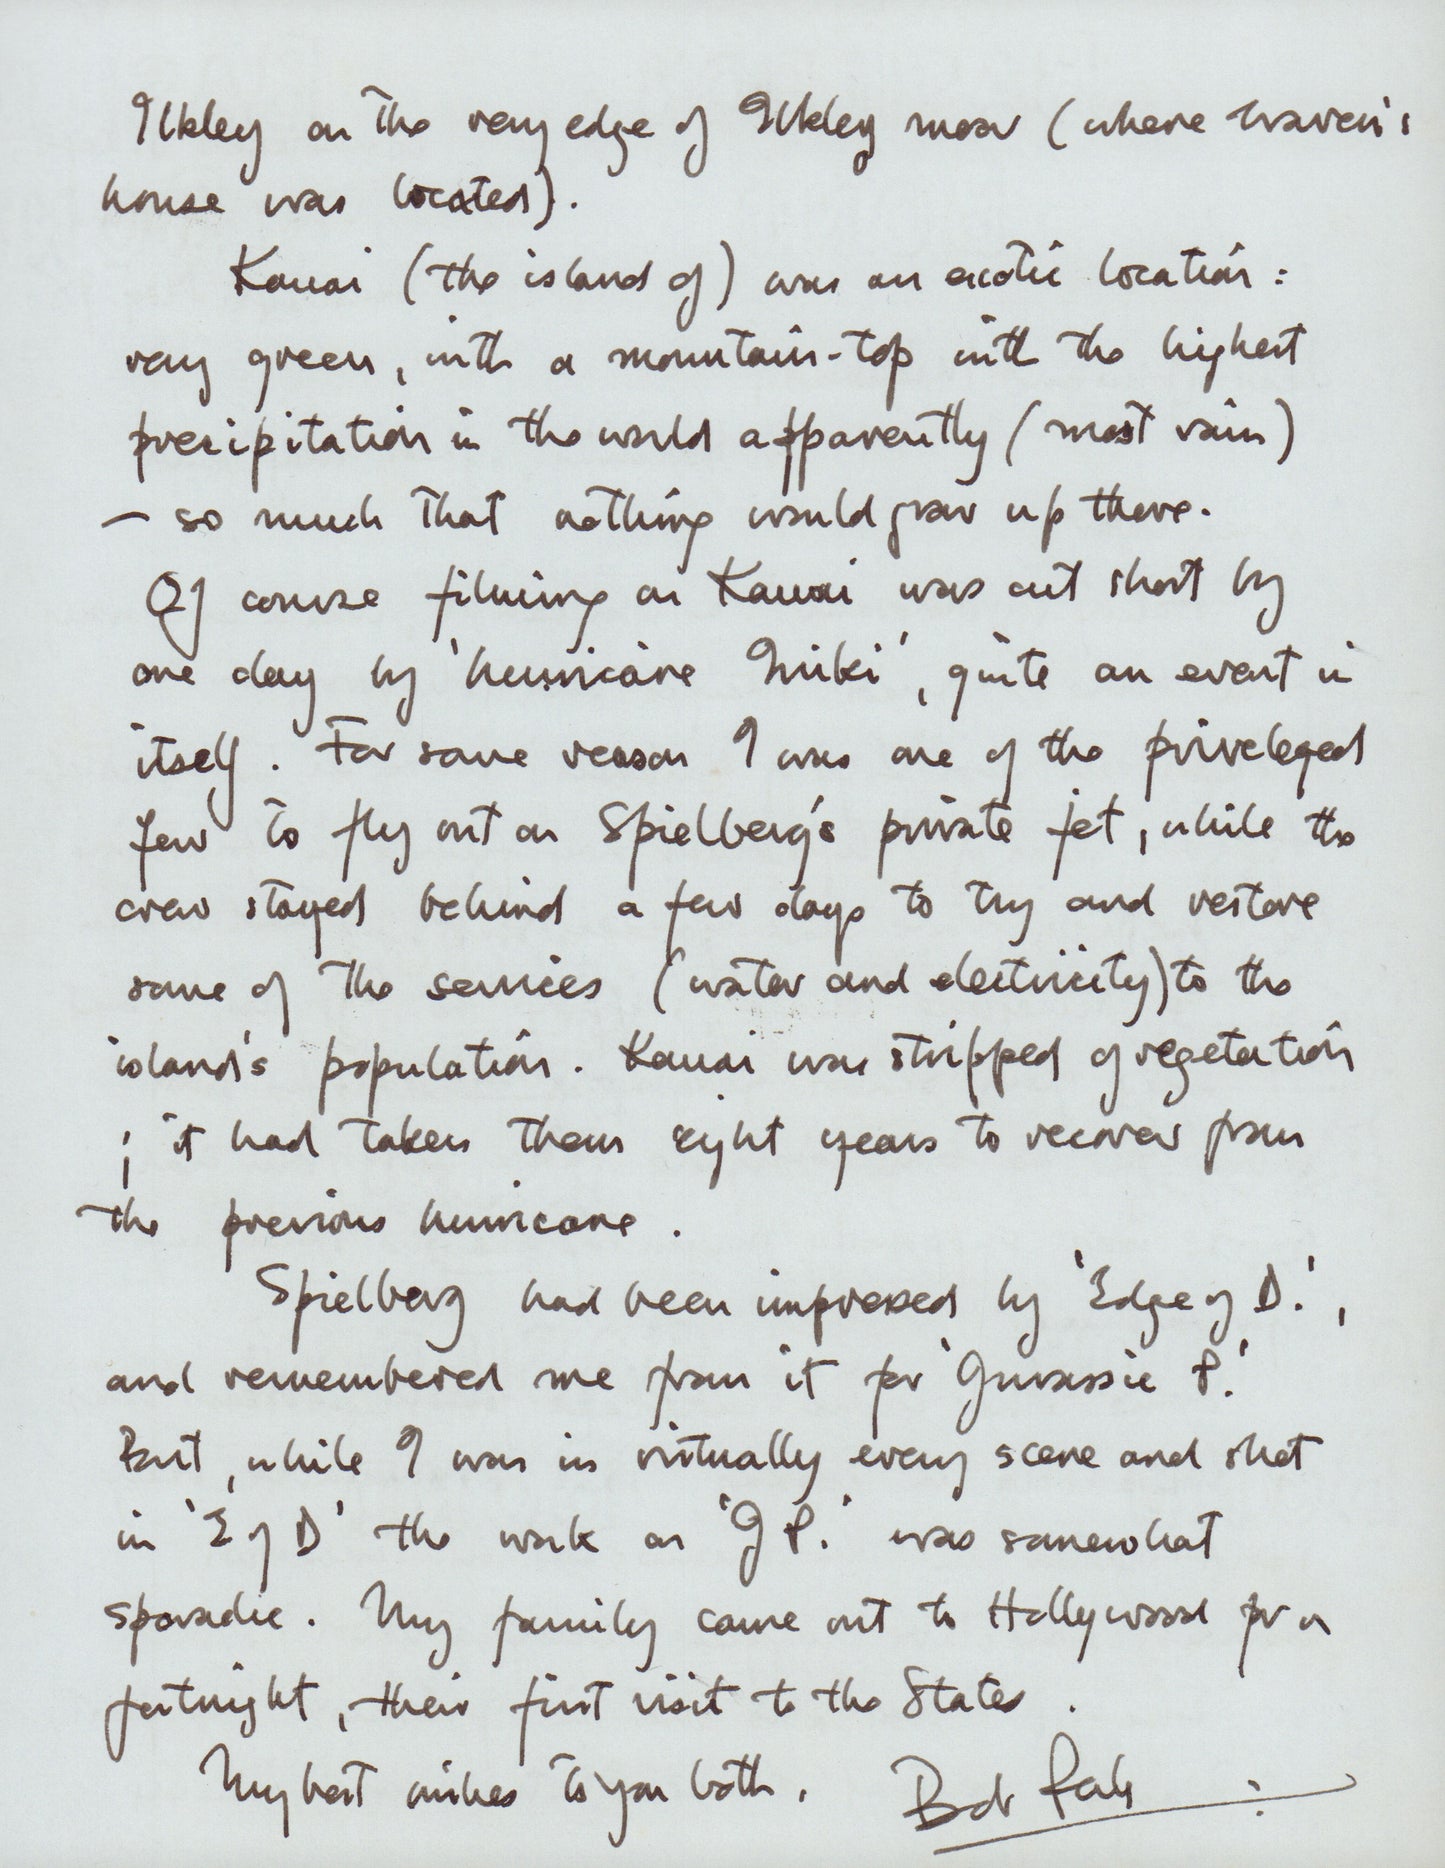 Ilkley on the very edge of Ilkley moor (where Craven's
house was located).
Kauai (the island of) was an exotic location:
very green, with a mountain-top with the highest
precipitation in the world apparently (most rain)
– so much that nothing would grow up there.
Of course filming on Kauai was cut short by
one day by 'hurricane Iniki', quite an event in
itself. For some reason I was one of the priveleged
few to fly out on Spielberg's private jet, while the
crew stayed behind a few days to try and restore
some of the services (water and electricity) to the
island's population. Kauai was stripped of vegetation
; it had taken them eight years to recover from
the previous hurricane.
Spielberg had been impressed by 'Edge of D.',
and remembered me from it for 'Jurassic P.'
But, while I was in virtually every scene and shot
in 'E of D' the work on 'J P.' was somewhat
sporadic. My family came out to Hollywood for a
fortnight, their first visit to the States.
My best wishes to you both. Bob Peck